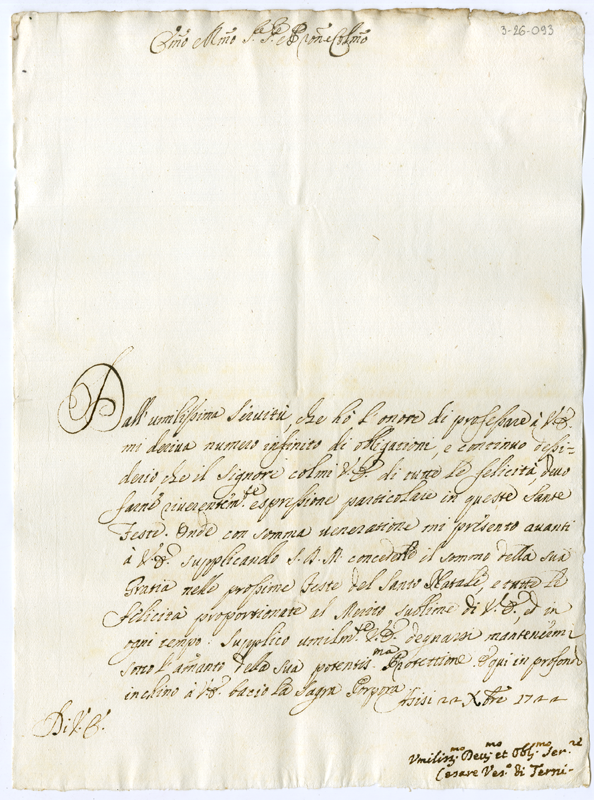 Em̃o e Rm̃o Sig.re Sig.re e Pron̄e Colm̃o
3-26-093
Dall' umilissima Servitù, che hò l'onore di professare à V. E.
mi deriva numero infinito di obligazioni, e continuo dessi=
derio che il Signore colmi V. E. di tutte le felicità, devo
farne riverentem.te espressione particolare in queste Sante
Feste. Onde con somma veneratione mi presento avanti
à V. E. supplicando S. D. M. concederle il sommo della sua
Gratia nelle prossime Feste del Santo Natale, e tutte le
felicità proportionate al Merito sublime di V. E., ed in
ogni tempo. Supplico umilm.te V. E. degnarsi mantenermi
sotto l'amanto della sua potentis.ma Protettione, e qui in profon
inchino à V. E. bacio la Sagra Porpora
Assisi 22 Xbre 1722
Di V. E.
Umiliss.mo Dev.mo et Obl.mo Ser.re
Cesare Ves.o di Terni-